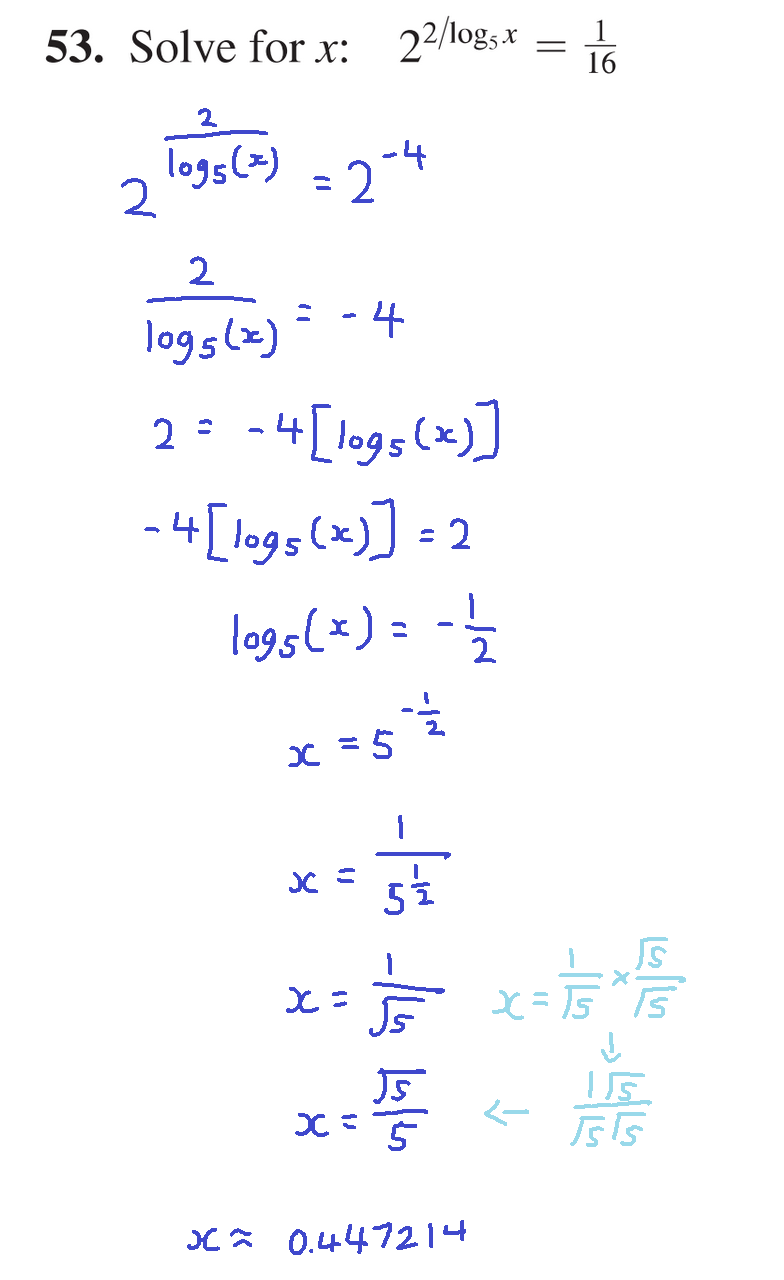 53. Solve for x: 2^(2/log₅ x) = 1/16
2^(2/log₅(x)) = 2^(-4)
2/log₅(x) = -4
2 = -4[log₅(x)]
-4[log₅(x)] = 2
log₅(x) = -1/2
x = 5^(-1/2)
x = 1/5^(1/2)
x = 1/√5
x = 1/√5 × √5/√5
↓
1√5/√5√5
←
x = √5/5
x ≈ 0.447214